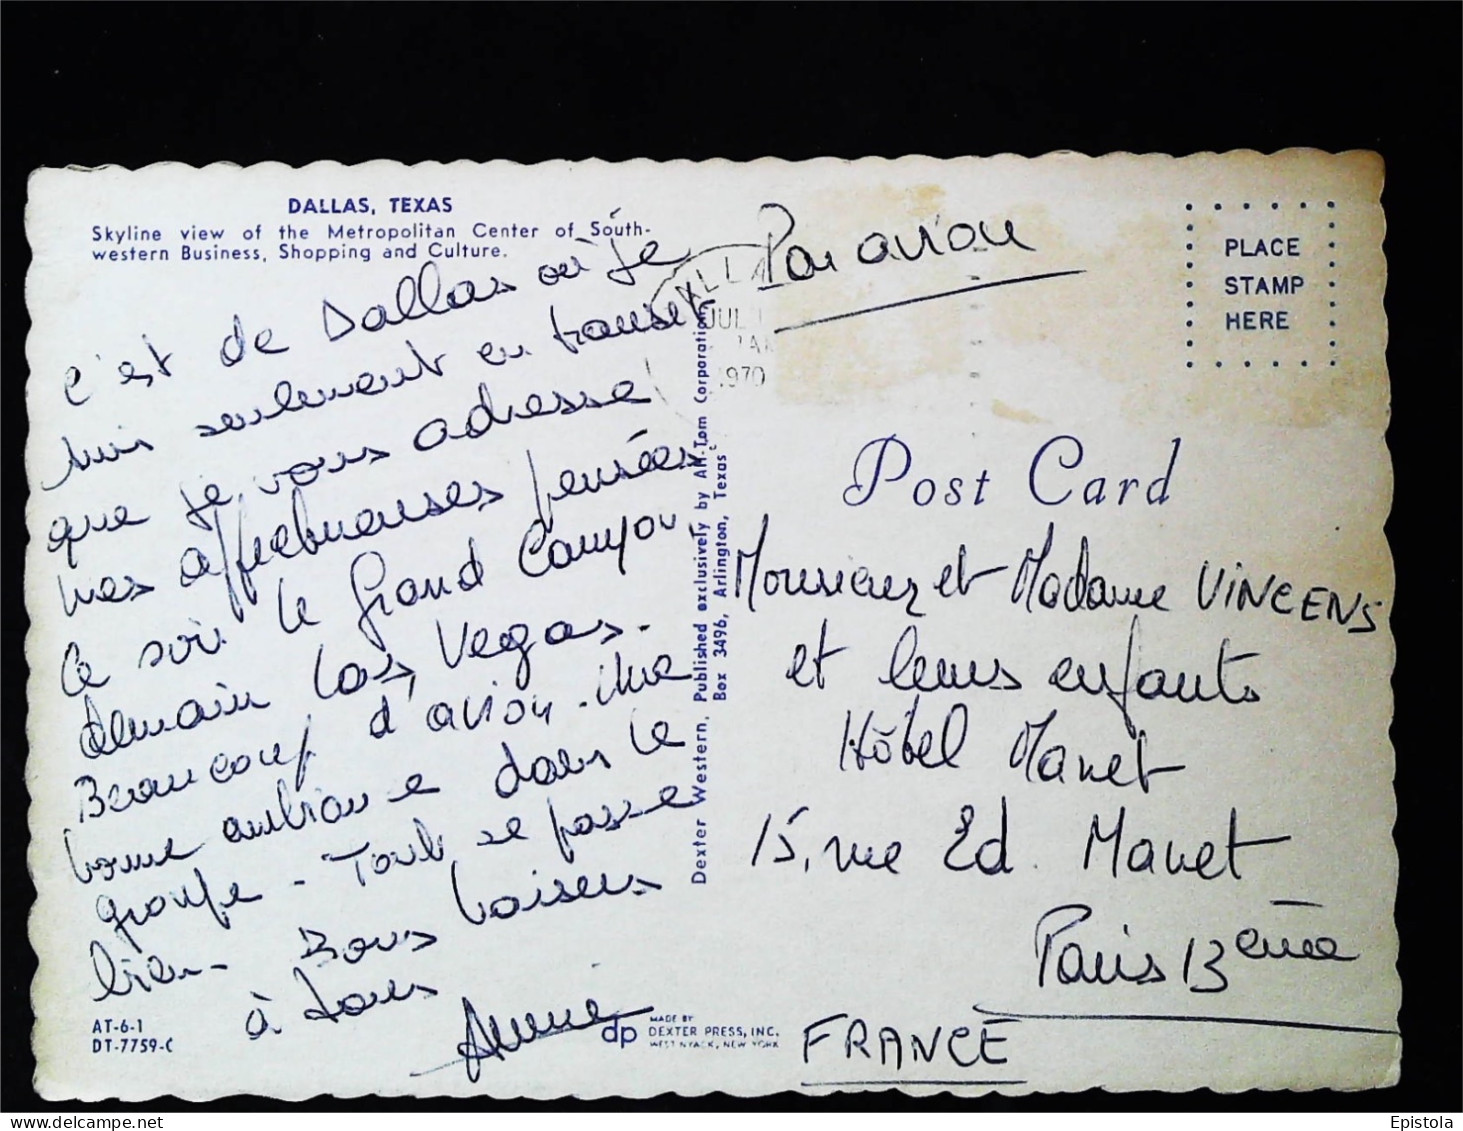 DALLAS, TEXAS
Skyline view of the Metropolitan Center of South-
western Business, Shopping and Culture.
c'est de Dallas où je
suis seulement en transit
que je vous adresse
mes affectueuses pensées
Ce soir le Grand Canyon,
demain Las Vegas.
Beaucoup d'avion. Une
bonne ambiance dans le
groupe - Tout se passe
bien - Bons baisers
à tous
Annie
AT-6-1
DT-7759-C
Dexter Western, Published exclusively by All-Tom Corporation,
Box 3496, Arlington, Texas
MADE BY
dp DEXTER PRESS, INC.
WEST NYACK, NEW YORK
ALLA
JUL
1970
Par avion
PLACE
STAMP
HERE
Post Card
Monsieur et Madame VINCENS
et leurs enfants
Hôtel Manet
15, rue Ed. Manet
Paris 13ème
FRANCE
Epistola